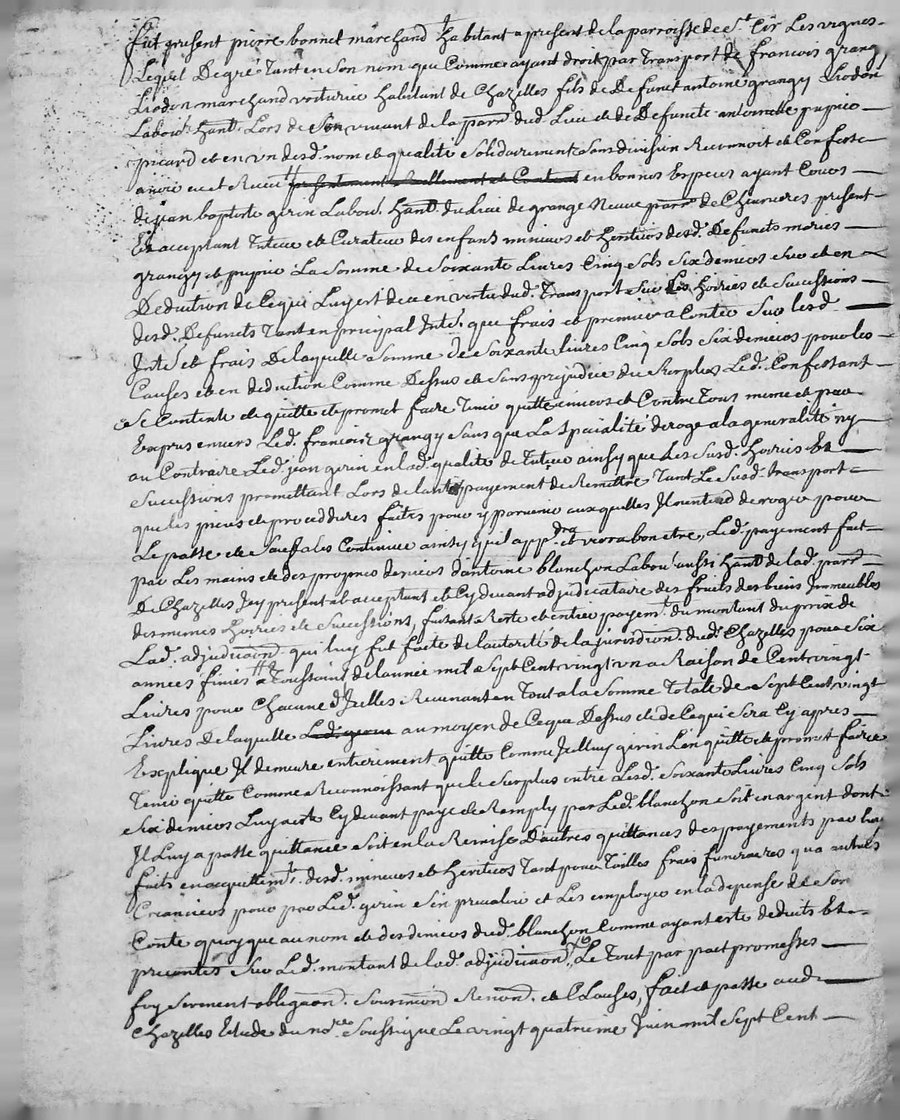 fut present pierre bonnet marchand habitant a present de la parroisse de st Cir Les vignes-
Lequel De gré Tant en Son nom que Comme ayant droit par Transport de francois grang
Liodon marchand voiturier habitant de Chazelles fils de Defunct antoine grangy Liodon
Labour. hant. Lors de Son vivant de la parr. dud. Lieu et de Defuncte antoinette pupie
picard et en un desd. nom et qualité Solidairement Sans division Reconnoit et Confesse
avoir eu et Receu presentement Reellement et Contant en bonnes Especes ayant Cours
de jean baptiste girin Labour. hant. du Lieu de grange Neuve parr. de Chevrieres present
Et acceptant Tuteur et Curateur des enfans mineurs et heritiers desd. Defuncts mories
grangy et pupie La Somme de Soixante Livres Cinq Sols Six deniers Sur et en
Deduction de Ce qui Luy est deu en vertu dud. Transport Sur Les hoiries et Successions
desd. Defuncts Tant en principal Intes. que frais et premier a Conter Sur lesd.
Intes. et frais De laquelle Somme de Soixante Livres Cinq Sols Six deniers pour les
Causes et en deduction Comme Dessus et Sans prejudice du Surplus Led. Confessant
Se Contente et quitte et promet faire Tenir quitte envers et Contre Tous meme et par
Expres envers Led. francois grangy Sans que La Specialité deroge a la generalité ny
au Contraire Led. jean girin en lad. qualité de Tuteur ainsy que Les Susd. hoiries Et
Successions promettant Lors de l'entier payement de Remettre Tant Le Susd. transport
que les pieces et proceddures faites pour y parvenir aux quelles Il n'entend deroger pour
Le passé et Sauf a les Continuer ainsy qu'il appdra. et verra bon etre, Led. payement fait
par Les mains et des propres deniers d'antoine blanchon Labour. aussi hant. de lad. parr.
De Chazelles Icy present et acceptant et Cy devant adjudicataire des fruits des biens Immeubles
des memes hoiries et Successions, faisant a Reste et entier payemt. du montant du prix de
Lad. adjudicaon. qui luy fut faite de l'autorité de la jurisdicion. dud. Chazelles pour Six
années finies a Toussaint de l'année mil Sept Cent vingt un a Raison de Cent vingt
Livres pour Chacune d'Icelles Revenant en Tout a la Somme Totale de Sept Cent vingt
Livres De laquelle Led. girin au moyen de Ce que Dessus et de Ce qui Sera Cy apres
Expliqué Il demeure entierement quitte Comme Iceluy girin L'en quitte et promet faire
Tenir quitte Comme Reconnoissant que le Surplus outre Lesd. Soixante Livres Cinq Sols
Six deniers Luy a eté Cy devant payé et Remply par Led. blanchon Soit en argent dont
Il Luy a passé quittance Soit en la Remise D'autres quittances des payements par luy
faits en acquittemt. desd. mineurs et heritiers Tant pour Tailles frais funeraires qu'a autres
Creanciers pour par Led. girin S'en prevaloir et Les employer en la depense de Son
Conte quoyque au nom et des deniers dud. blanchon Comme ayant eté deduits Et
precontés Sur Led. montant de lad. adjudicaon. Le Tout par pact promesses
foy Serment obligaon. Soumission Renon. et Clauses, fait et passé aud.
Chazelles Etude du nore. Soussigné Le vingt quatrieme Juin mil Sept Cent